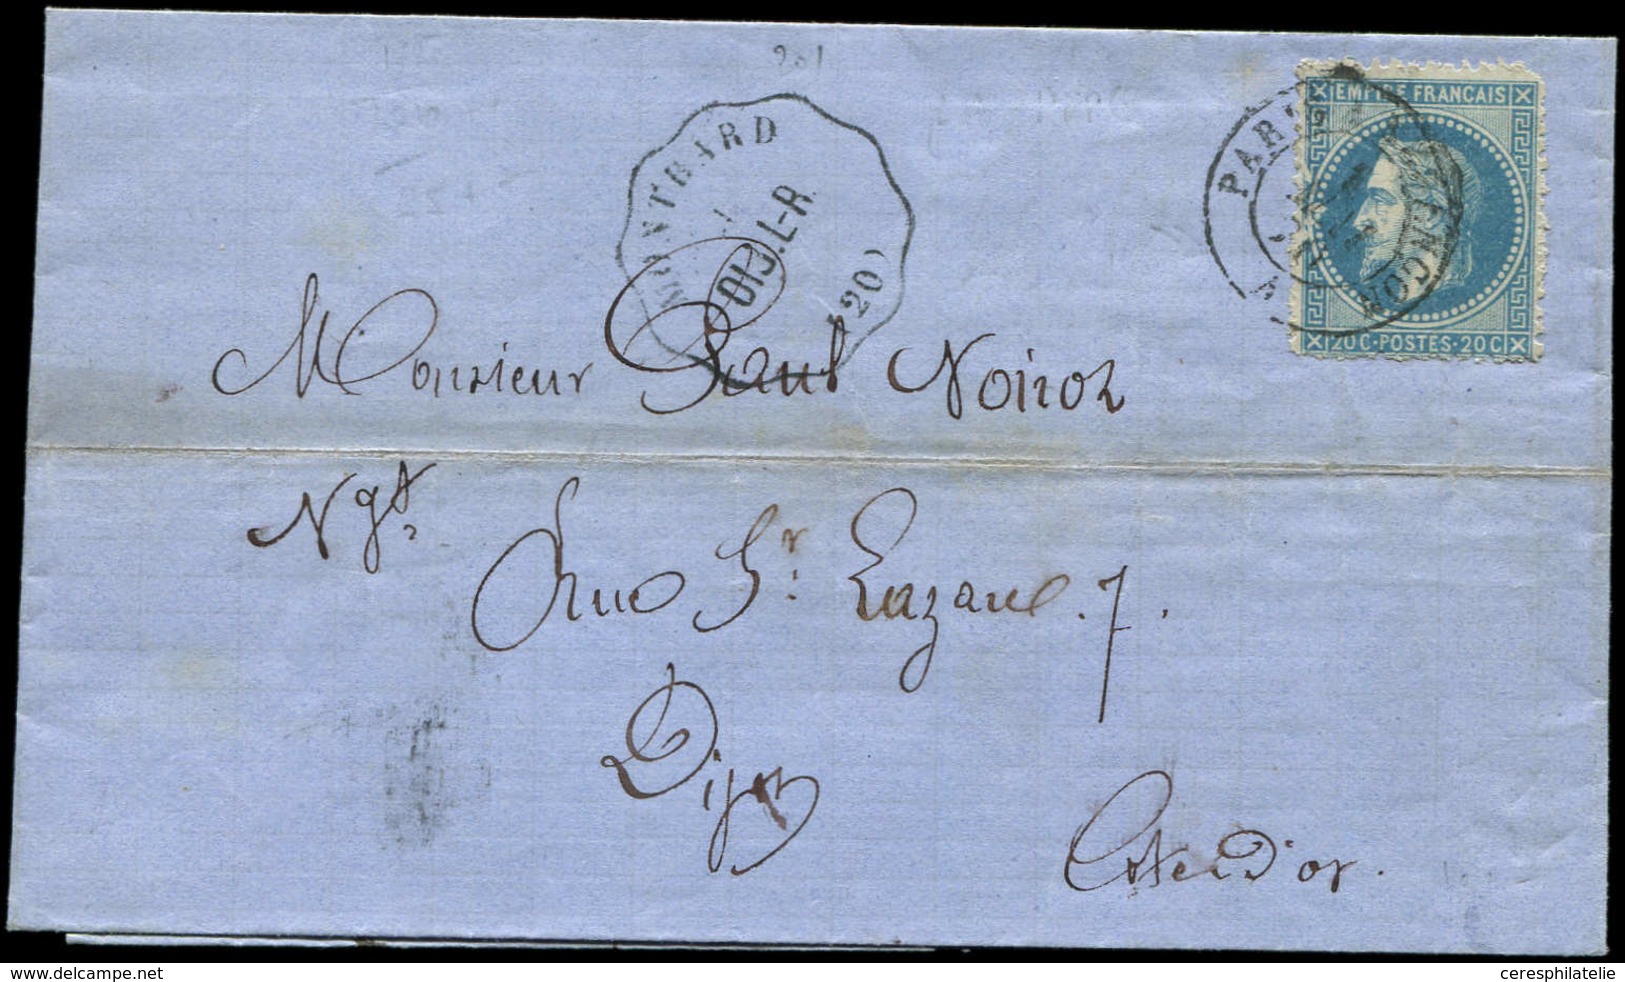 281
MONTBARD
DIJ.L-R.
(20)
PARIS
EMPIRE FRANÇAIS
20 C·POSTES·20 C
Monsieur Paul Noirot
Ngt.
Rue St. Lazare. 7.
Dijon
Côte d'or.
Coyrighted delcampe.net
ceresphilatelie